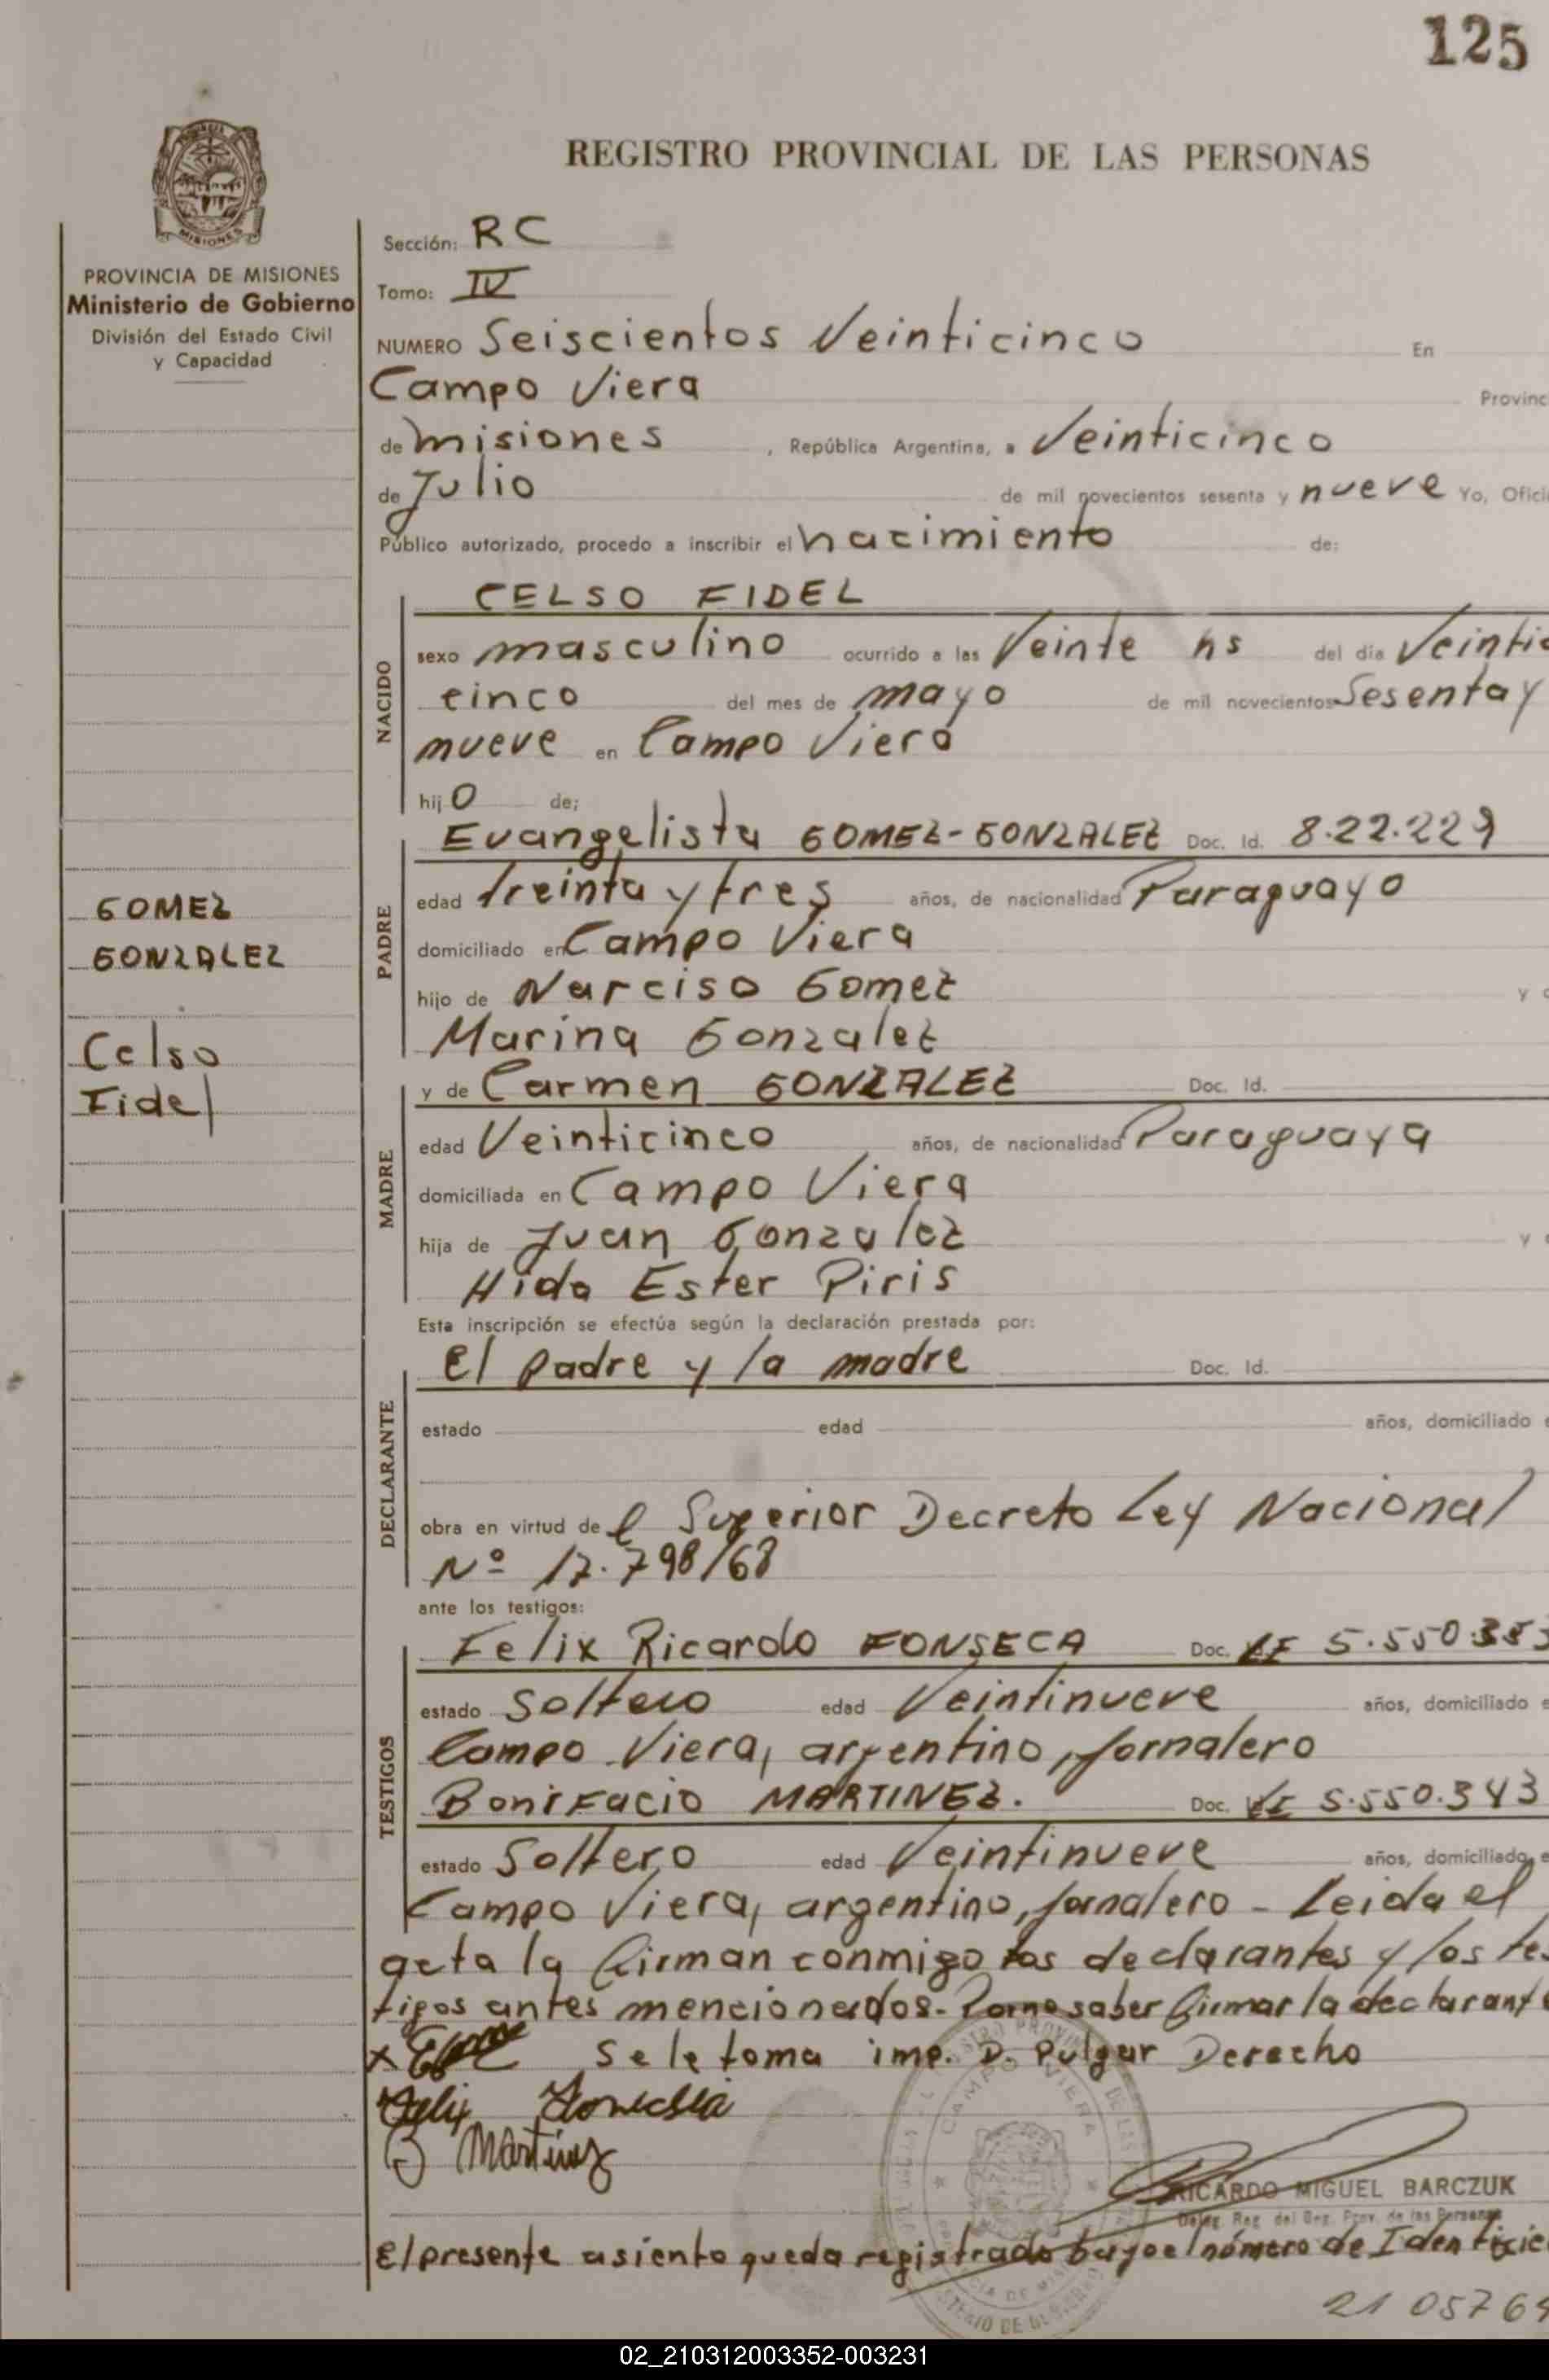 125
REGISTRO PROVINCIAL DE LAS PERSONAS
MISIONES
PROVINCIA DE MISIONES
Ministerio de Gobierno
División del Estado Civil
y Capacidad
GOMEZ
GONZALEZ
Celso
Fidel
Sección: RC
Tomo: IV
NUMERO Seiscientos Veinticinco En
Campo Viera Provinc
de misiones , República Argentina, a Veinticinco
de Julio de mil novecientos sesenta y nueve Yo, Ofici
Público autorizado, procedo a inscribir el nacimiento de:
NACIDO
CELSO FIDEL
sexo masculino ocurrido a las Veinte hs del día Veinti
cinco del mes de mayo de mil novecientos Sesenta y
nueve en Campo Viera
hijo de;
PADRE
Evangelista GOMEZ-GONZALEZ Doc. Id. 8.22.229
edad treinta y tres años, de nacionalidad Paraguayo
domiciliado en Campo Viera
hijo de Narciso Gomez y
Marina Gonzalez
MADRE
y de Carmen GONZALEZ Doc. Id.
edad Veinticinco años, de nacionalidad Paraguaya
domiciliada en Campo Viera
hija de Juan Gonzalez y
Hida Ester Piris
Esta inscripción se efectúa según la declaración prestada por:
DECLARANTE
El padre y la madre Doc. Id.
estado edad años, domiciliado
obra en virtud del Superior Decreto Ley Nacional
Nº 17.798/68
ante los testigos:
TESTIGOS
Felix Ricardo FONSECA Doc. LE 5.550.353
estado Soltero edad Veintinueve años, domiciliado
Campo Viera, argentino, jornalero
Bonifacio MARTINEZ. Doc. LE 5.550.343
estado Soltero edad Veintinueve años, domiciliado
Campo Viera, argentino, jornalero - Leida el
acta la firman conmigo los declarantes y los te
tigos antes mencionados- Por no saber firmar la declarante
x se le toma imp. D. Pulgar Derecho
Felix Fonseca
B Martinez
CAMPO VIERA
RICARDO MIGUEL BARCZUK
Deleg. Reg. del Reg. Prov. de las Personas
El presente asiento queda registrado bajo el número de Identific
21 0576
02_210312003352-003231